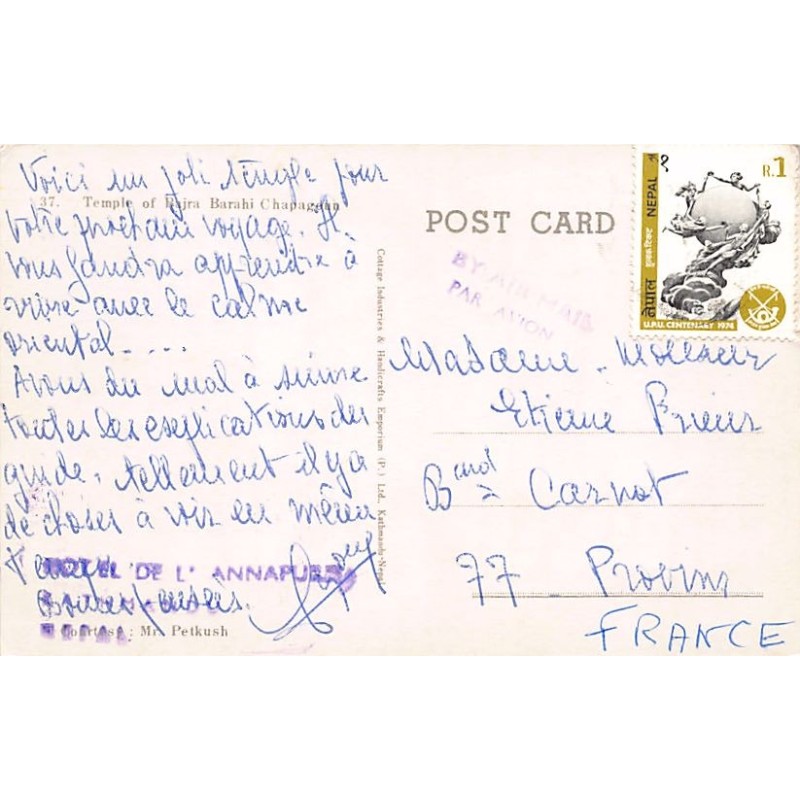 Voici un joli temple pour
37. Temple of Bajra Barahi Chapagaun
votre prochain voyage. Il
vous faudra apprendre à
vivre avec le calme
oriental....
Avons du mal à suivre
toutes les explications du
guide, tellement il y a
de choses à voir en même
temps.
HOTEL DE L' ANNAPURNA
Bonnes pensées.
Courtesy : Mr. Petkush
Cottage Industries & Handicrafts Emporium (P.) Ltd., Kathmandu-Nepal
POST CARD
BY AIR MAIL
PAR AVION
R.1
NEPAL
नेपाल
हुलाक टिकट
U.P.U. CENTENARY 1974
Madame - Monsieur
Etienne Prieur
Bard Carnot
77 Provins
FRANCE